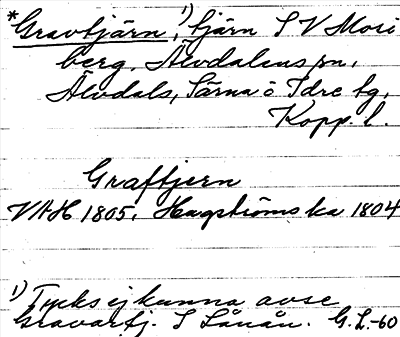 *Gravtjärn,¹) tjärn S V Mosi
berg, Älvdalens sn,
Älvdals, Särna o Idre tg,
Kopp. l.
Graftjern
VAH 1805. Hagströms ka 1804
¹) Tycks ej kunna avse
Gravartj. S Lånån. G. L. -60